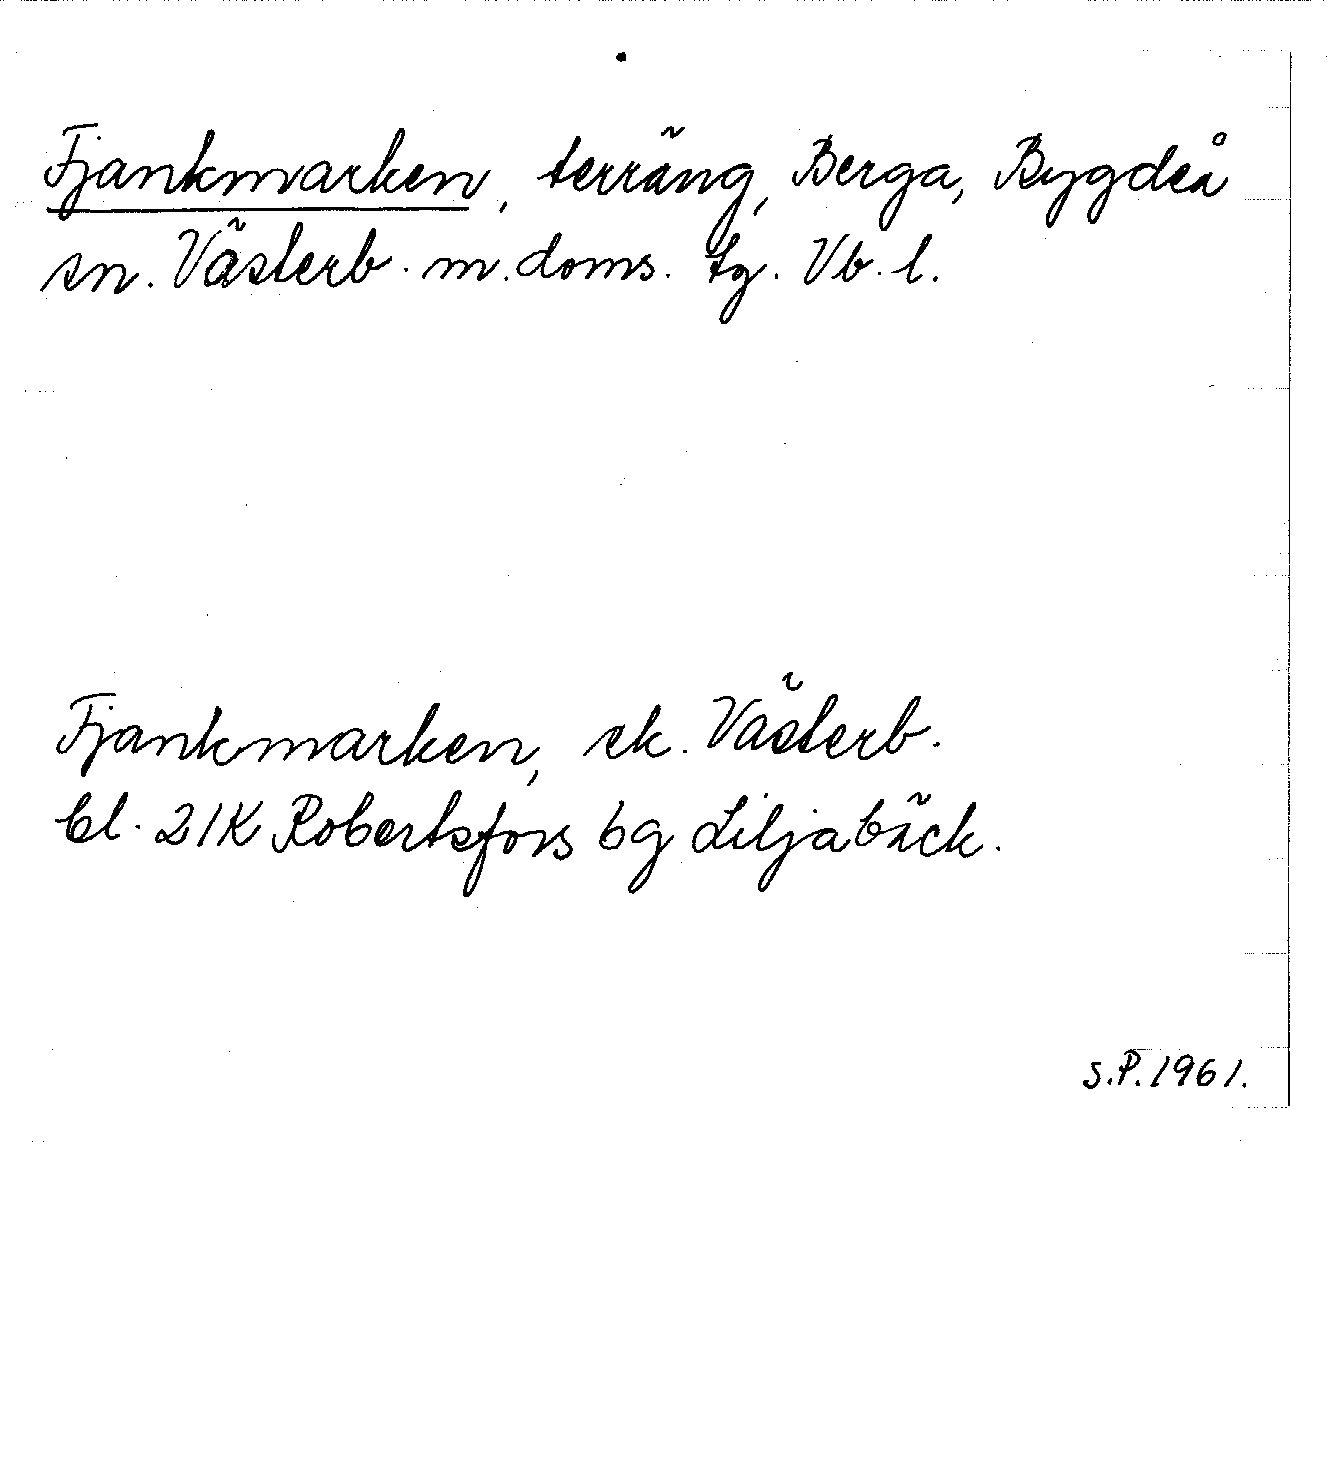 Fjankmarken, terräng, Berga, Bygdeå
sn. Västerb. m. doms. tg. Vb. l.
Fjankmarken, ek. Västerb.
bl. 21K Robertsfors 6g Liljabäck.
S.P. 1961.